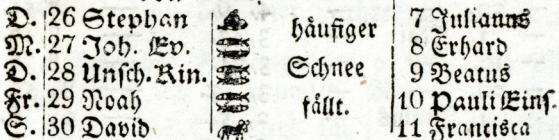 D. 26 Stephan häufiger 7 Julianus
M. 27 Joh. Ev. Schnee 8 Erhard
D. 28 Unsch. Kin. fällt. 9 Beatus
Fr. 29 Noah 10 Pauli Eins.
S. 30 David 11 Francisca